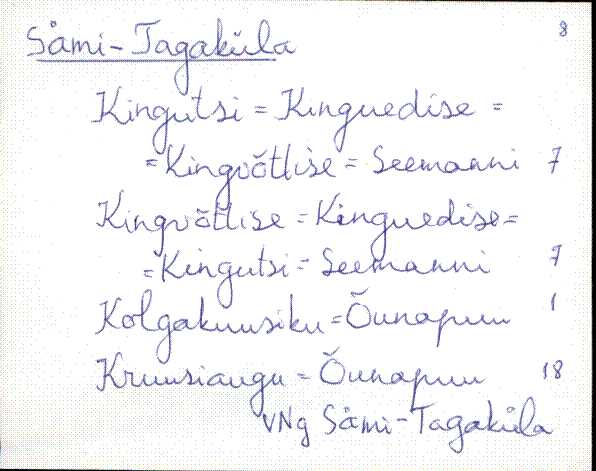 Sämi-Tagaküla 8
Kingutsi = Kinguedise =
= Kingvõtlise = Seemanni 7
Kingvõtlise = Kinguedise =
= Kingutsi = Seemanni 7
Kolgakuusiku = Õunapuu 1
Kruusiaugu = Õunapuu 18
VNg Sämi-Tagaküla